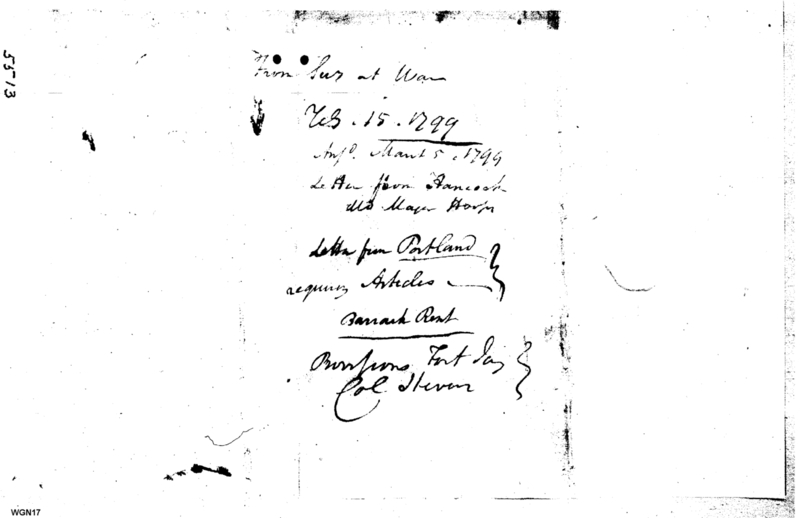 From Secy at War
Feb. 15. 1799
Ansd. March 5. 1799
Letter from Hancock
do Major
Letter from Portland
requiring Articles
Barrack Rent
Provisions, Fort Jay
Col Stevens
5513
WGN17